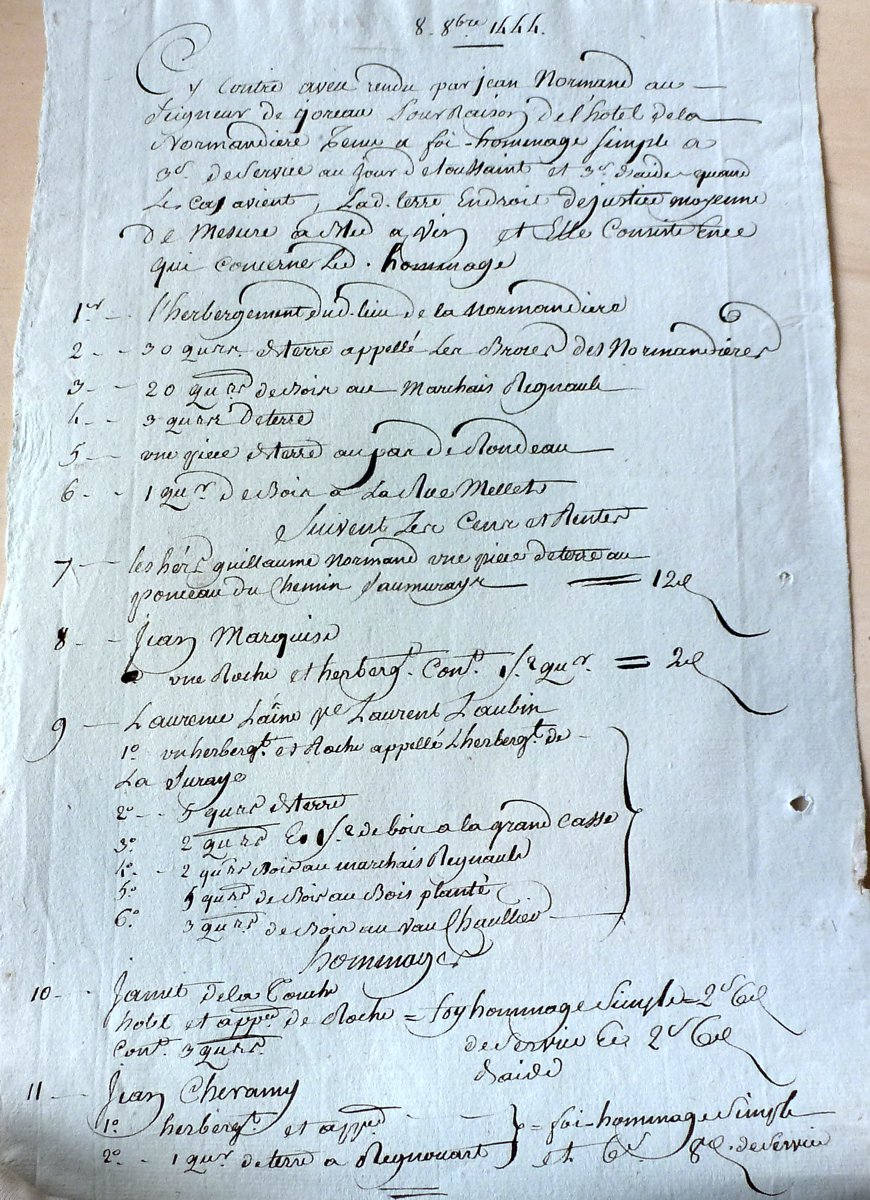 8. 8bre 1444.
Cy Contre aveu rendu par jean Normand au
Seigneur de joreau Pour Raison de l'hotel de la
Normandiere Tenue a foi-hommage simple a
3s. de Service au Jour de toussaint et 3s. d'aide quand
Les Cas avient, Lad. terre En droit de justice moyenne
de Mesure a bled a Vin et Elle Consiste En ce
qui concerne Led. hommage
1er l'herbergement dud. lieu de la Normandiere
2 -- 30 qurs. de terre appellé Les Broces des Normandieres
3 -- 20 qurs de Bois au Marchais Regnault
4 -- 3 qurs de terre
5 -- une piece de terre au pas de Rondeau
6 -- 1 qur. de Bois a La Rue Mellet
Suivent Les Cens et Rentes
7 -- les hérs guillaume Normand une piece de terre au
ponceau du Chemin Saumurays = 12d
8 -- Jean Marquise
une Roche et herbergt. Cont. 1/2 qur. = 2d
9 -- Laurence Laîné Laurent Laubin
1o un herbergt. et Roche appellé L'herbergt. de
La Suraye
2o -- 5 qurs de terre
3o 2 qurs Et 1/2 de bois a la grand Casse
4o - 2 qurs Bois au marchais Regnault
5o 5 qurs de Bois au Bois planté
6o 3 qurs de Bois au Vau Chaullier
hommages
10 -- Jamet de la Touche
hotel et appces de Roche = foy hommage Simple = 2s 6d
Cont. 3 qurs. de Service Et 2s 6d
d'aide
11 -- Jean Cheramy
1o herbergt. et appces = foi-hommage Simple
2o - 1 qur de terre a Regnouart et 6s 8d. de Service